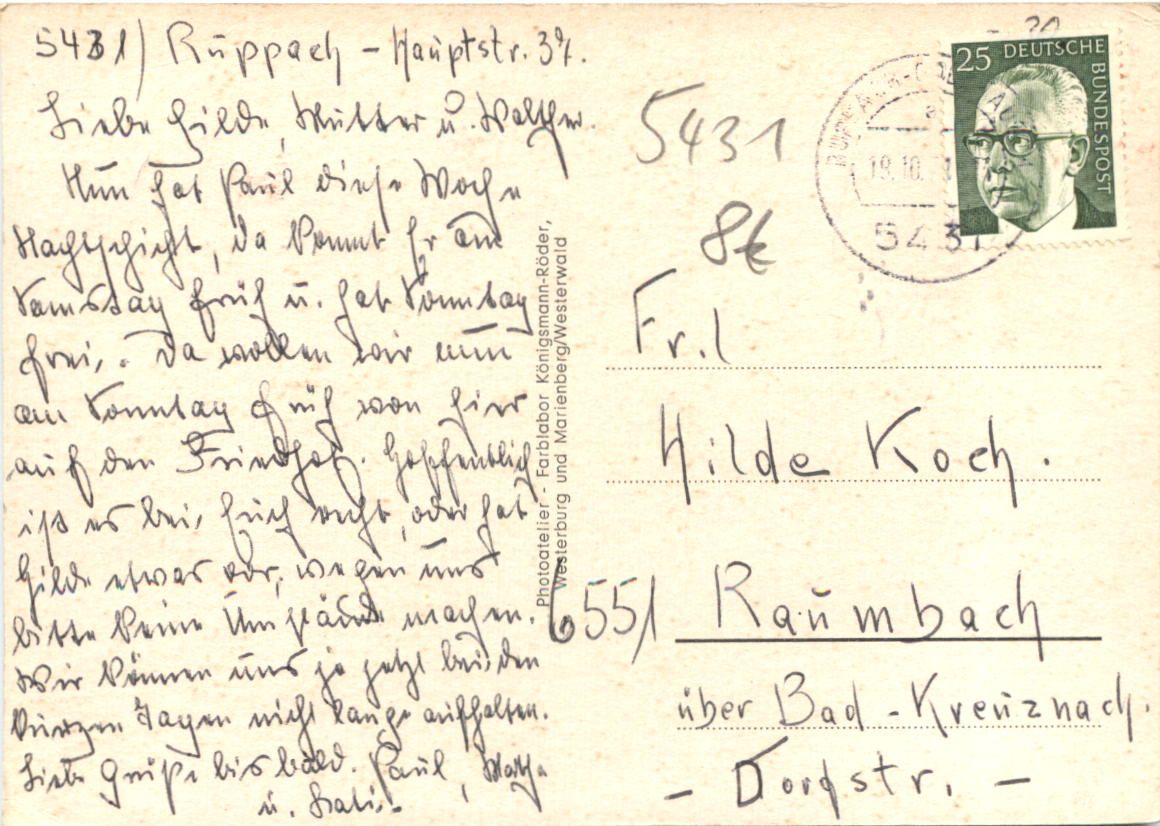 5431) Ruppach - Hauptstr. 37.
Liebe Hilde, Mutter u. Walther.
Nun hat Paul diese Woche
Nachtschicht, da kommt Er am
Samstag früh u. hat Sonntag
frei. Da wollen wir nun
am Sonntag früh von hier
auf den Friedhof. Hoffentlich
ist es bei Euch recht, oder hat
Hilde etwas vor, wegen uns
bitte keine Umstände machen.
Wir können uns ja jetzt bei den
kurzen Tagen nicht lange aufhalten.
Liebe Grüße bis bald. Paul,
u.
Photoatelier - Farblabor Königsmann-Röder,
Westerburg und Marienberg/Westerwald
5431
8€
25 DEUTSCHE BUNDESPOST
18.10.
5431
Frl
Hilde Koch.
6551 Raumbach
über Bad - Kreuznach.
- Dorfstr. -